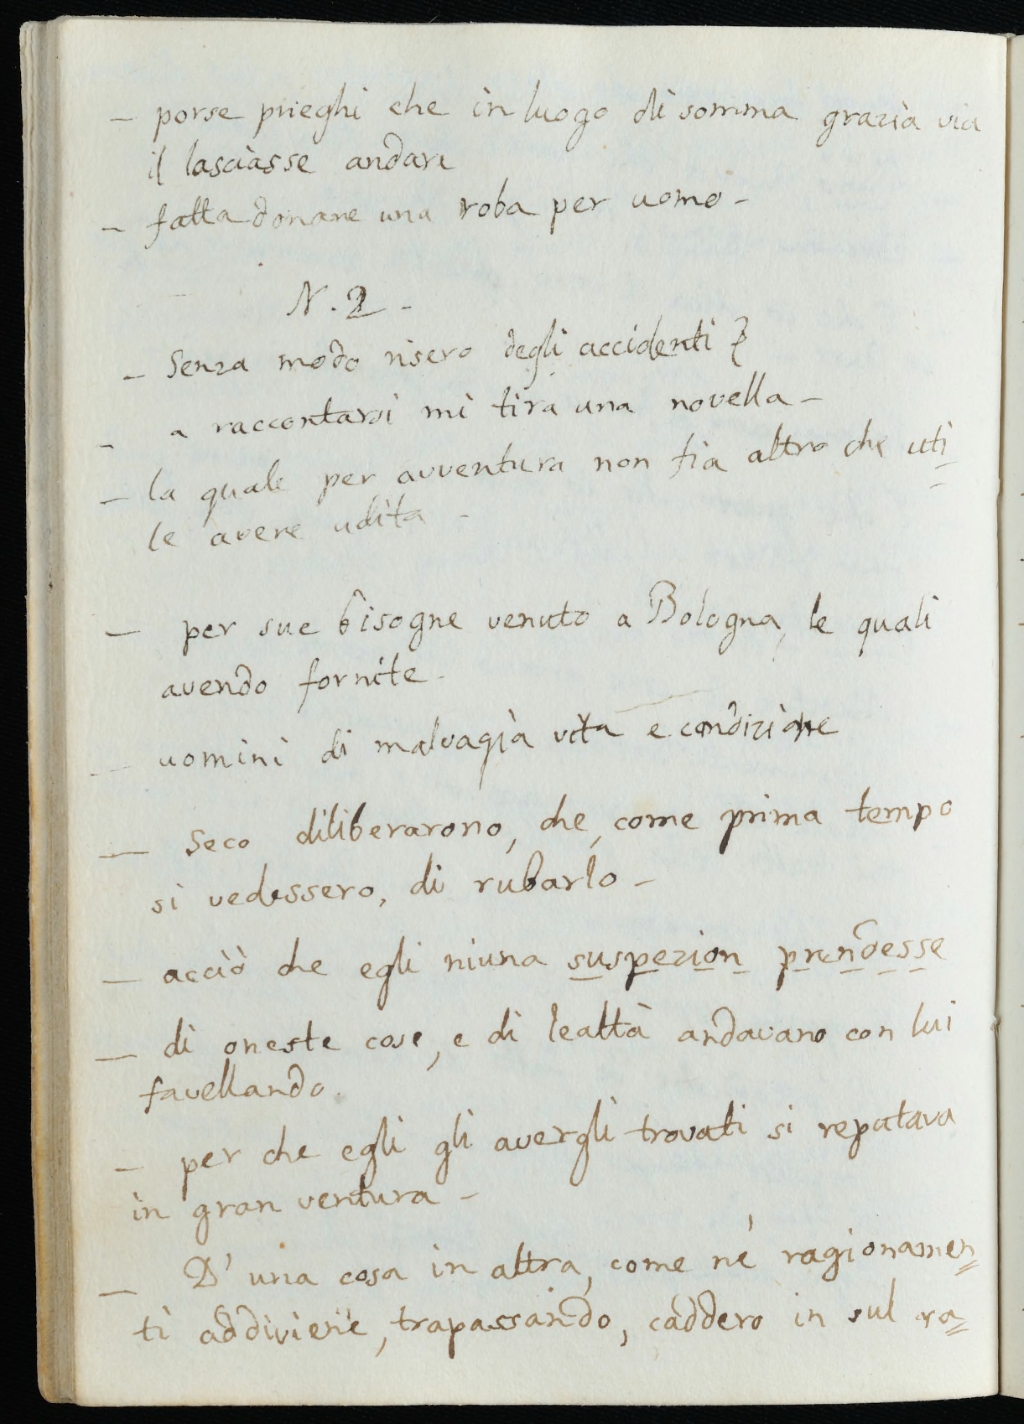 – porse prieghi che in luogo di somma grazia via
il lasciasse andare
– fatta donare una roba per uomo –
N. 2 –
– Senza modo risero degli accidenti
– a raccontarsi mi tira una novella –
– la quale per avventura non fia altro che uti
le avere udita –
– per sue bisogne venuto a Bologna, le quali
avendo fornite.
– uomini di malvagia vita e condizione
– Seco diliberarono, che, come prima tempo
si vedessero, di rubarlo –
– acciò che egli niuna suspezion prendesse
– di oneste cose, e di lealtà andavano con lui
favellando.
– per che egli gli avergli trovati si reputava
in gran ventura –
– D' una cosa in altra, come ne' ragionamen=
ti addiviene, trapassando, caddero in sul ra=